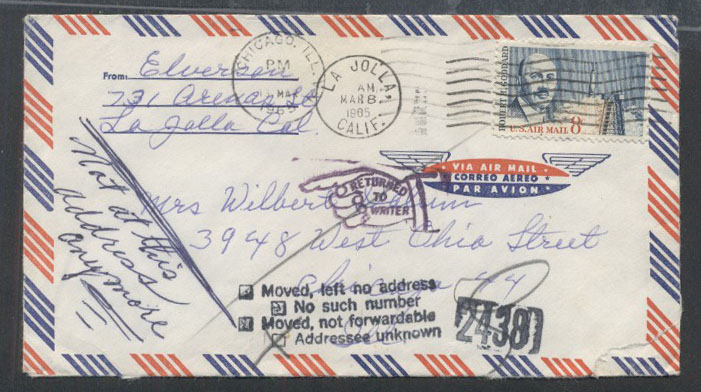 From: Elverson
731 Arenas St
La Jolla Cal
CHICAGO, ILL.
PM
MAR
1965
LA JOLLA,
AM
MAR 8
1965
CALIF.
ROBERT H. GODDARD
U.S. AIR MAIL 8c
VIA AIR MAIL
CORREO AEREO
PAR AVION
RETURNED
TO
WRITER
Not at this
address
anymore
Mrs Wilbert
3948 West Ohio Street
Chicago 24
Moved, left no address
No such number
Moved, not forwardable
Addressee unknown
2438